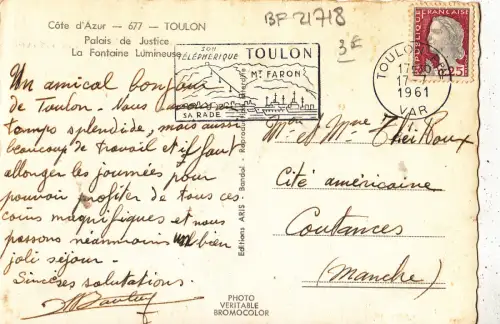 Côte d'Azur — 677 — TOULON
Palais de Justice
La Fontaine Lumineuse
BF 21718
3E
SON
TÉLÉPHERIQUE
TOULON
Mt FARON
SA RADE
REPUBLIQUE FRANÇAISE
0,25
TOULON
17-
1961
VAR
Un amical bonjour
de Toulon. Nous avons
temps splendide, mais aussi
beaucoup de travail et il faut
allonger les journées pour
pouvoir profiter de tous ces
coins magnifiques et nous
passons néanmoins un bien
joli séjour.
Sincères salutations.
Editions ARIS Bandol - Reproduction Interdite
Mr et Mme Roux
Cité américaine
Coutances
(Manche)
PHOTO
VERITABLE
BROMOCOLOR